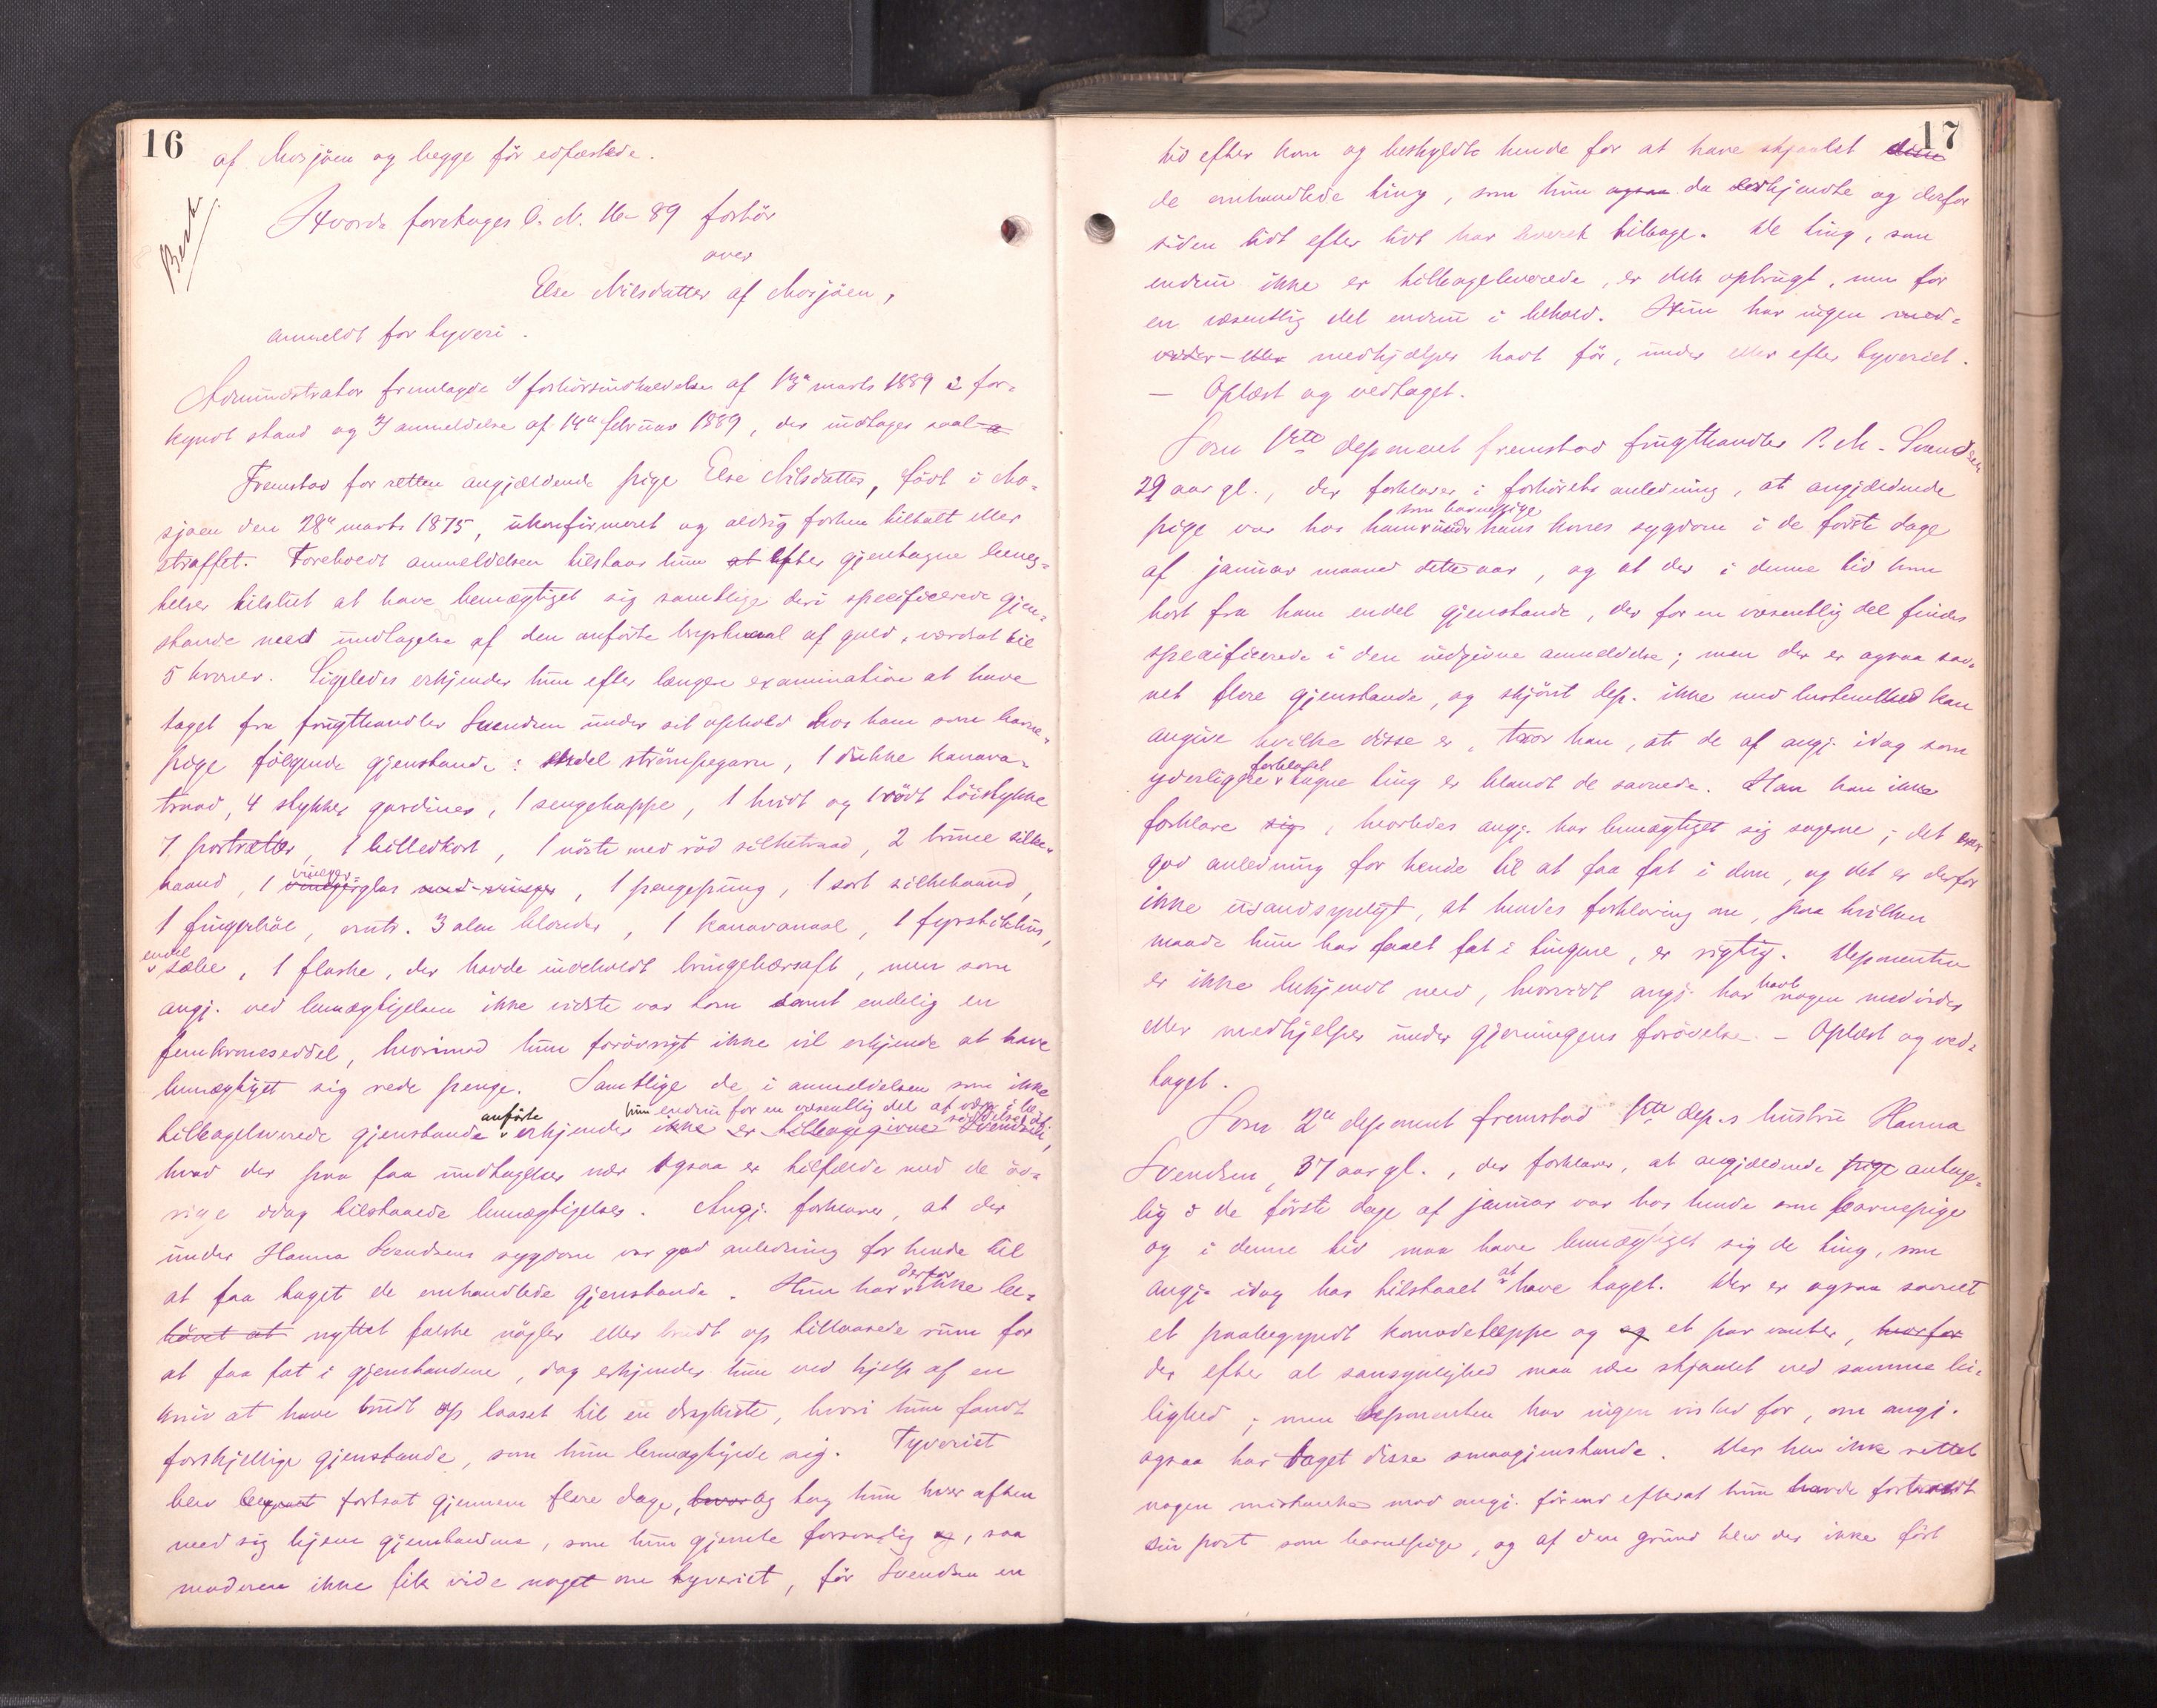 16
af Mosjøen og begge før edfæstede.
Besk.
Hvorda foretoges O. N. 16-89 forhør
over
Else Nilsdatter af Mosjøen,
anmeldt for tyveri.
Administrator fremlagde 1 forhørsindkaldelse af 13de marts 1889 i for-
kyndt stand og 2 anmeldelse af 14de februar 1889, der indtages saal.
Fremstod for retten angjældende pige Else Nilsdatter, født i Mo-
sjøen den 28de marts 1875, ukonfirmeret og aldrig forhen tiltalt eller
straffet. Foreholdt anmeldelsen tilstaar hun at efter gjentagne beneg-
telser tilslut at have bemægtiget sig samtlige deri specificerede gjen-
stande med undtagelse af den anførte af guld, værdsat til
5 kroner. Ligeledes erkjender hun efter længere examination at have
taget fra frugthandler Svendsen under sit ophold hos ham som barne-
pige følgende gjenstande: endel strømpegarn, 1 dukke kanava-
traad, 4 stykker gardiner, 1 sengekappe, 1 hvidt og 1 rødt tøistykke
7 portrætter, 1 billedkort, 1 nøste med rød silketraad, 2 brune silke-
baand, 1 vinger glas med vinger, 1 pengepung, 1 sort silkebaand,
1 fingerbøl, omtr. 3 alen blonder, 1 kanavanaal, 1 fyrstikhus,
endel sæbe, 1 flaske, der havde indeholdt bringebærsaft, men som
angj. ved bemægtigelsen ikke vidste var tom samt endelig en
femkroneseddel, hvorimod hun forøvrigt ikke vil erkjende at have
bemægtiget sig rede penge. Samtlige de i anmeldelsen som ikke
hun endnu for en væsentlig del at være i be-
tilbageleverede gjenstande anførte erkjender ikke er tilbagegivne Svendsen,
hvad der paa faa undtagelser nær ogsaa er tilfælde med de øv-
rige idag tilstaaede bemægtigelser. Angj. forklarer, at der
under Hanna Svendsens sygdom var god anledning for hende til
at faa taget de omhandlede gjenstande. Hun har derfor ikke be-
høvet at nyttet falske nøgler eller brudt op tillaasede rum for
at faa fat i gjenstandene, dog erkjender hun ved hjelp af en
kniv at have brudt op laaset til en dragkiste, hvori hun fandt
forskjellige gjenstande, som hun bemægtigede sig. Tyveriet
blev begaaet fortsat gjennem flere dage, hvor og tog hun hver aften
med sig hjem gjenstandene, som hun gjemte forsvarlig og, saa
moderen ikke fik vide noget om tyveriet, før Svendsen en
17
tid efter kom og beskyldte hende for at have stjaalet disse
de omhandlede ting, som hun ogsaa da vedkjendte og derfor
siden lidt efter lidt har leveret tilbage. De ting, som
endnu ikke er tilbageleverede, er dels opbrugt, men for
en væsentlig del endnu i behold. Hun har ingen med-
vider eller medhjælper havt før, under eller efter tyveriet.
— Oplæst og vedtaget.
Som 1ste deponent fremstod frugthandler P. M. Svendsen
29 aar gl., der forklarer i forhørets anledning, at angjældende
som barnepige
pige var hos ham under hans kones sygdom i de første dage
af januar maaned dette aar, og at der i denne tid kom
bort fra ham endel gjenstande, der for en væsentlig del findes
specificerede i den indgivne anmeldelse; men der er ogsaa sav-
net flere gjenstande, og skjønt dep. ikke med bestemthed kan
angive hvilke disse er, tror han, at de af angj. idag som
forklaret
yderligere tagne ting er blandt de savnede. Han kan ikke
forklare sig, hvorledes angj. har bemægtiget sig sagerne; det var
god anledning for hende til at faa fat i dem, og det er derfor
ikke usandsynligt, at hendes forklaring om, paa hvilken
maade hun har faaet fat i tingene, er rigtig. Deponenten
er ikke bekjendt med, hvorvidt angj. har havt nogen medvider
eller medhjelper under gjerningens forøvelse. — Oplæst og ved-
taget.
Som 2de deponent fremstod 1ste dep.s hustru Hanna
Svendsen, 37 aar gl., der forklarer, at angjældende pige antage-
lig i de første dage af januar var hos hende som barnepige
og i denne tid maa have bemægtiget sig de ting, som
angj. idag har tilstaaet at have taget. Der er ogsaa savnet
et paabegyndt komodeteppe og og et par vanter, hvorfor
der efter al sansynlighed maa være stjaalet ved samme lei-
lighed; men deponenten har ingen vished for, om angj.
ogsaa har taget disse smaagjenstande. Der blev ikke rettet
nogen mistanke mod angj. førend efterat hun havde fortladt
sin post som barnepige, og af den grund blev der ikke ført